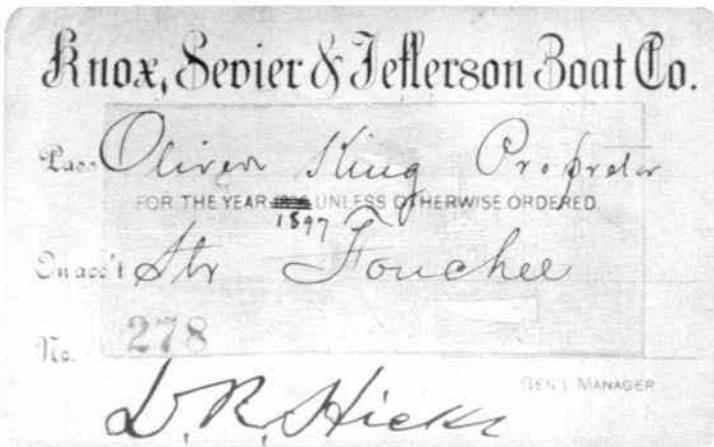 Knox, Sevier & Jefferson Boat Co.
Pass Oliver King Propretor
FOR THE YEAR UNLESS OTHERWISE ORDERED.
1897
On acc't Str Fouchee
No. 278
GEN'L MANAGER
D. R. Hicks